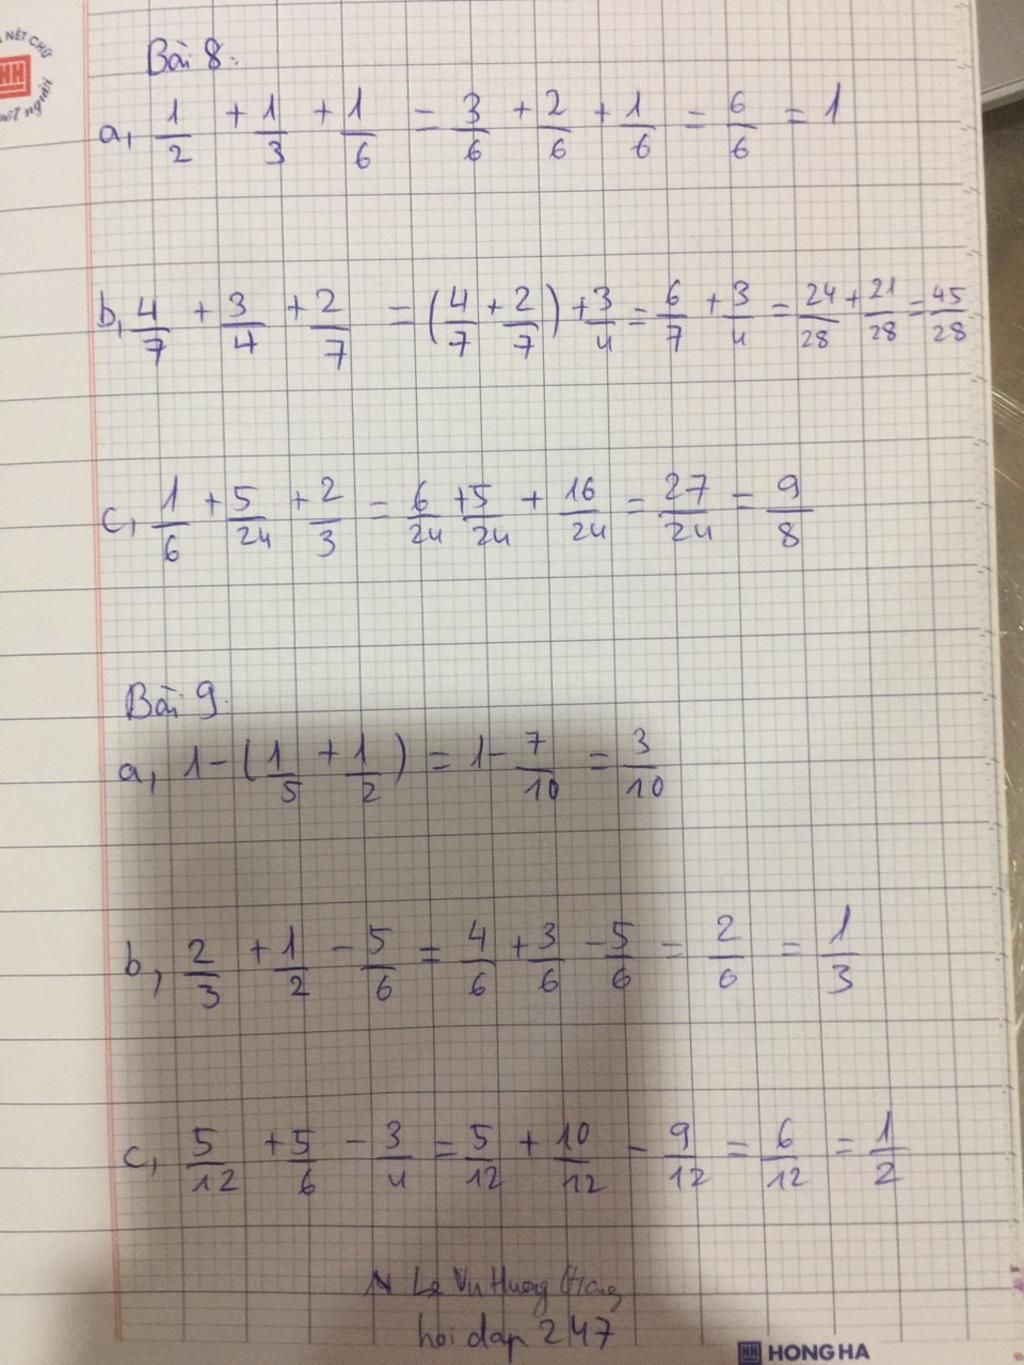 NÉT CHỮ
HH
Bài 8:
a, 1/2 + 1/3 + 1/6 = 3/6 + 2/6 + 1/6 = 6/6 = 1
b, 4/7 + 3/4 + 2/7 = (4/7 + 2/7) + 3/4 = 6/7 + 3/4 = 24/28 + 21/28 = 45/28
c, 1/6 + 5/24 + 2/3 = 6/24 + 5/24 + 16/24 = 27/24 = 9/8
Bài 9.
a, 1 - (1/5 + 1/2) = 1 - 7/10 = 3/10
b, 2/3 + 1/2 - 5/6 = 4/6 + 3/6 - 5/6 = 2/6 = 1/3
c, 5/12 + 5/6 - 3/4 = 5/12 + 10/12 - 9/12 = 6/12 = 1/2
Le Vu Huong Giang
hoi dap 247
HONG HA